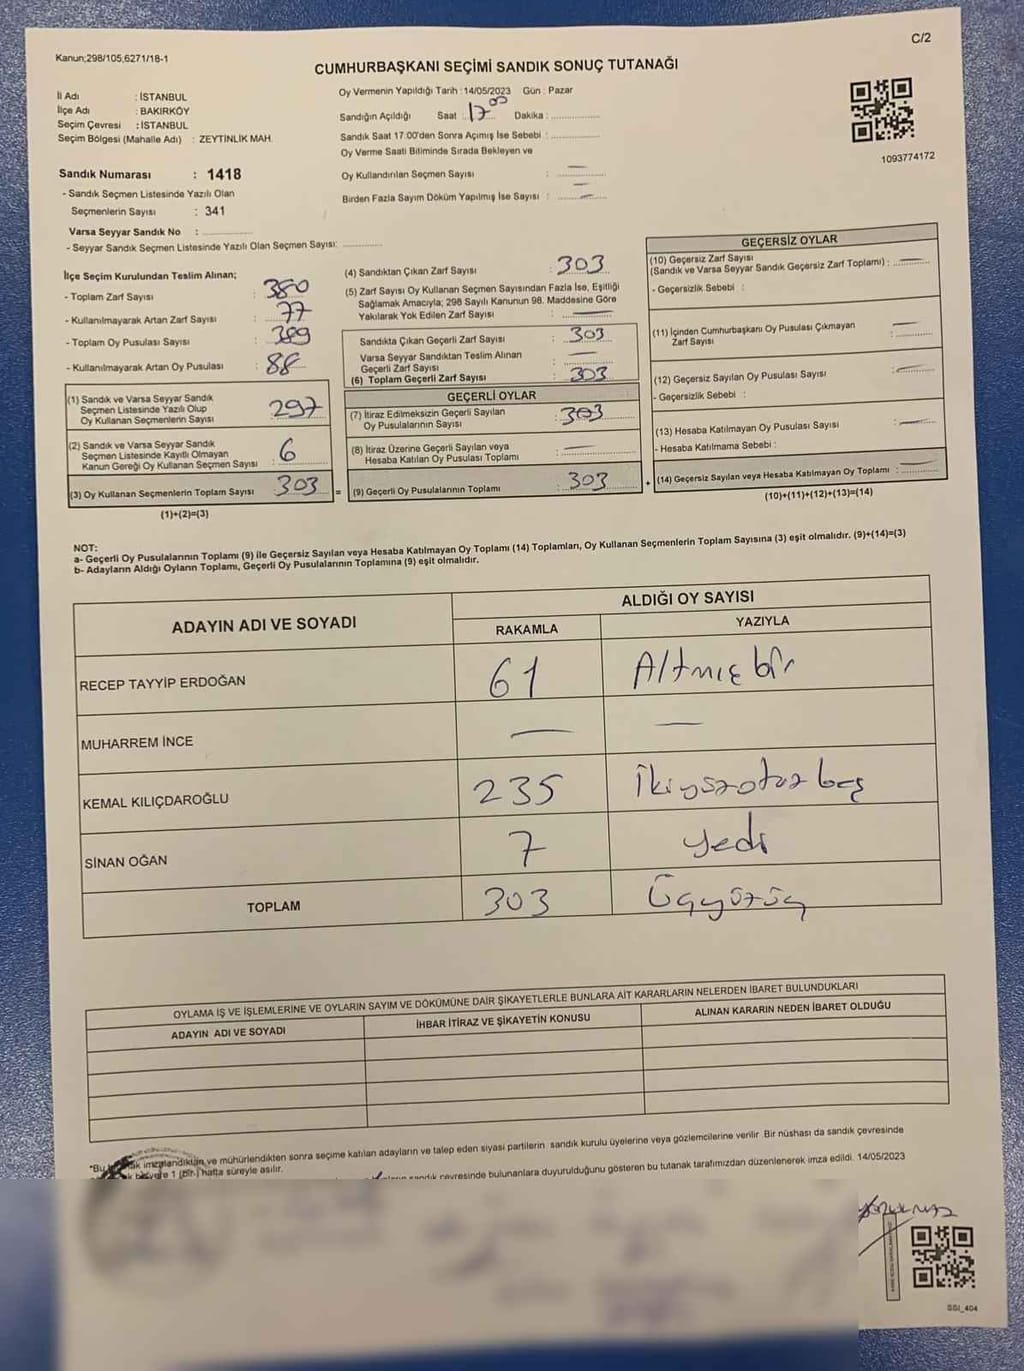 Kanun;298/105;6271/18-1
C/2
CUMHURBAŞKANI SEÇİMİ SANDIK SONUÇ TUTANAĞI
İl Adı : İSTANBUL
İlçe Adı : BAKIRKÖY
Seçim Çevresi : İSTANBUL
Seçim Bölgesi (Mahalle Adı) : ZEYTİNLİK MAH.
Oy Vermenin Yapıldığı Tarih : 14/05/2023 Gün : Pazar
Sandığın Açıldığı Saat : 17 00 Dakika :
Sandık Saat 17:00'den Sonra Açımış İse Sebebi :
Oy Verme Saati Bitiminde Sırada Bekleyen ve
Oy Kullandırılan Seçmen Sayısı : —
Birden Fazla Sayım Döküm Yapılmış İse Sayısı : —
1093774172
Sandık Numarası : 1418
- Sandık Seçmen Listesinde Yazılı Olan
Seçmenlerin Sayısı : 341
Varsa Seyyar Sandık No :
- Seyyar Sandık Seçmen Listesinde Yazılı Olan Seçmen Sayısı:
İlçe Seçim Kurulundan Teslim Alınan;
- Toplam Zarf Sayısı : 380
- Kullanılmayarak Artan Zarf Sayısı : 77
- Toplam Oy Pusulası Sayısı : 389
- Kullanılmayarak Artan Oy Pusulası : 88
(1) Sandık ve Varsa Seyyar Sandık
Seçmen Listesinde Yazılı Olup
Oy Kullanan Seçmenlerin Sayısı : 297
(2) Sandık ve Varsa Seyyar Sandık
Seçmen Listesinde Kayıtlı Olmayan
Kanun Gereği Oy Kullanan Seçmen Sayısı : 6
(3) Oy Kullanan Seçmenlerin Toplam Sayısı : 303
(1)+(2)=(3)
=
(4) Sandıktan Çıkan Zarf Sayısı : 303
(5) Zarf Sayısı Oy Kullanan Seçmen Sayısından Fazla İse, Eşitliği
Sağlamak Amacıyla; 298 Sayılı Kanunun 98. Maddesine Göre
Yakılarak Yok Edilen Zarf Sayısı : —
Sandıkta Çıkan Geçerli Zarf Sayısı : 303
Varsa Seyyar Sandıktan Teslim Alınan
Geçerli Zarf Sayısı : —
(6) Toplam Geçerli Zarf Sayısı : 303
GEÇERLİ OYLAR
(7) İtiraz Edilmeksizin Geçerli Sayılan
Oy Pusulalarının Sayısı : 303
(8) İtiraz Üzerine Geçerli Sayılan veya
Hesaba Katılan Oy Pusulası Toplamı : —
(9) Geçerli Oy Pusulalarının Toplamı : 303
+
GEÇERSİZ OYLAR
(10) Geçersiz Zarf Sayısı
(Sandık ve Varsa Seyyar Sandık Geçersiz Zarf Toplamı) : —
- Geçersizlik Sebebi :
(11) İçinden Cumhurbaşkanı Oy Pusulası Çıkmayan
Zarf Sayısı : —
(12) Geçersiz Sayılan Oy Pusulası Sayısı : —
- Geçersizlik Sebebi :
(13) Hesaba Katılmayan Oy Pusulası Sayısı : —
- Hesaba Katılmama Sebebi :
(14) Geçersiz Sayılan veya Hesaba Katılmayan Oy Toplamı : —
(10)+(11)+(12)+(13)=(14)
NOT:
a- Geçerli Oy Pusulalarının Toplamı (9) ile Geçersiz Sayılan veya Hesaba Katılmayan Oy Toplamı (14) Toplamları, Oy Kullanan Seçmenlerin Toplam Sayısına (3) eşit olmalıdır. (9)+(14)=(3)
b- Adayların Aldığı Oyların Toplamı, Geçerli Oy Pusulalarının Toplamına (9) eşit olmalıdır.
ADAYIN ADI VE SOYADI
ALDIĞI OY SAYISI
RAKAMLA YAZIYLA
RECEP TAYYİP ERDOĞAN 61 Altmış bir
MUHARREM İNCE — —
KEMAL KILIÇDAROĞLU 235 İkiyüzotuz beş
SİNAN OĞAN 7 yedi
TOPLAM 303 Üçyüzüç
OYLAMA İŞ VE İŞLEMLERİNE VE OYLARIN SAYIM VE DÖKÜMÜNE DAİR ŞİKAYETLERLE BUNLARA AİT KARARLARIN NELERDEN İBARET BULUNDUKLARI
ADAYIN ADI VE SOYADI İHBAR İTİRAZ VE ŞİKAYETİN KONUSU ALINAN KARARIN NEDEN İBARET OLDUĞU
*Bu imzalandıktan ve mühürlendikten sonra seçime katılan adayların ve talep eden siyasi partilerin sandık kurulu üyelerine veya gözlemcilerine verilir. Bir nüshası da sandık çevresinde
1 (bir) hafta süreyle asılır.
sandık çevresinde bulunanlara duyurulduğunu gösteren bu tutanak tarafımızdan düzenlenerek imza edildi. 14/05/2023
SSI_404